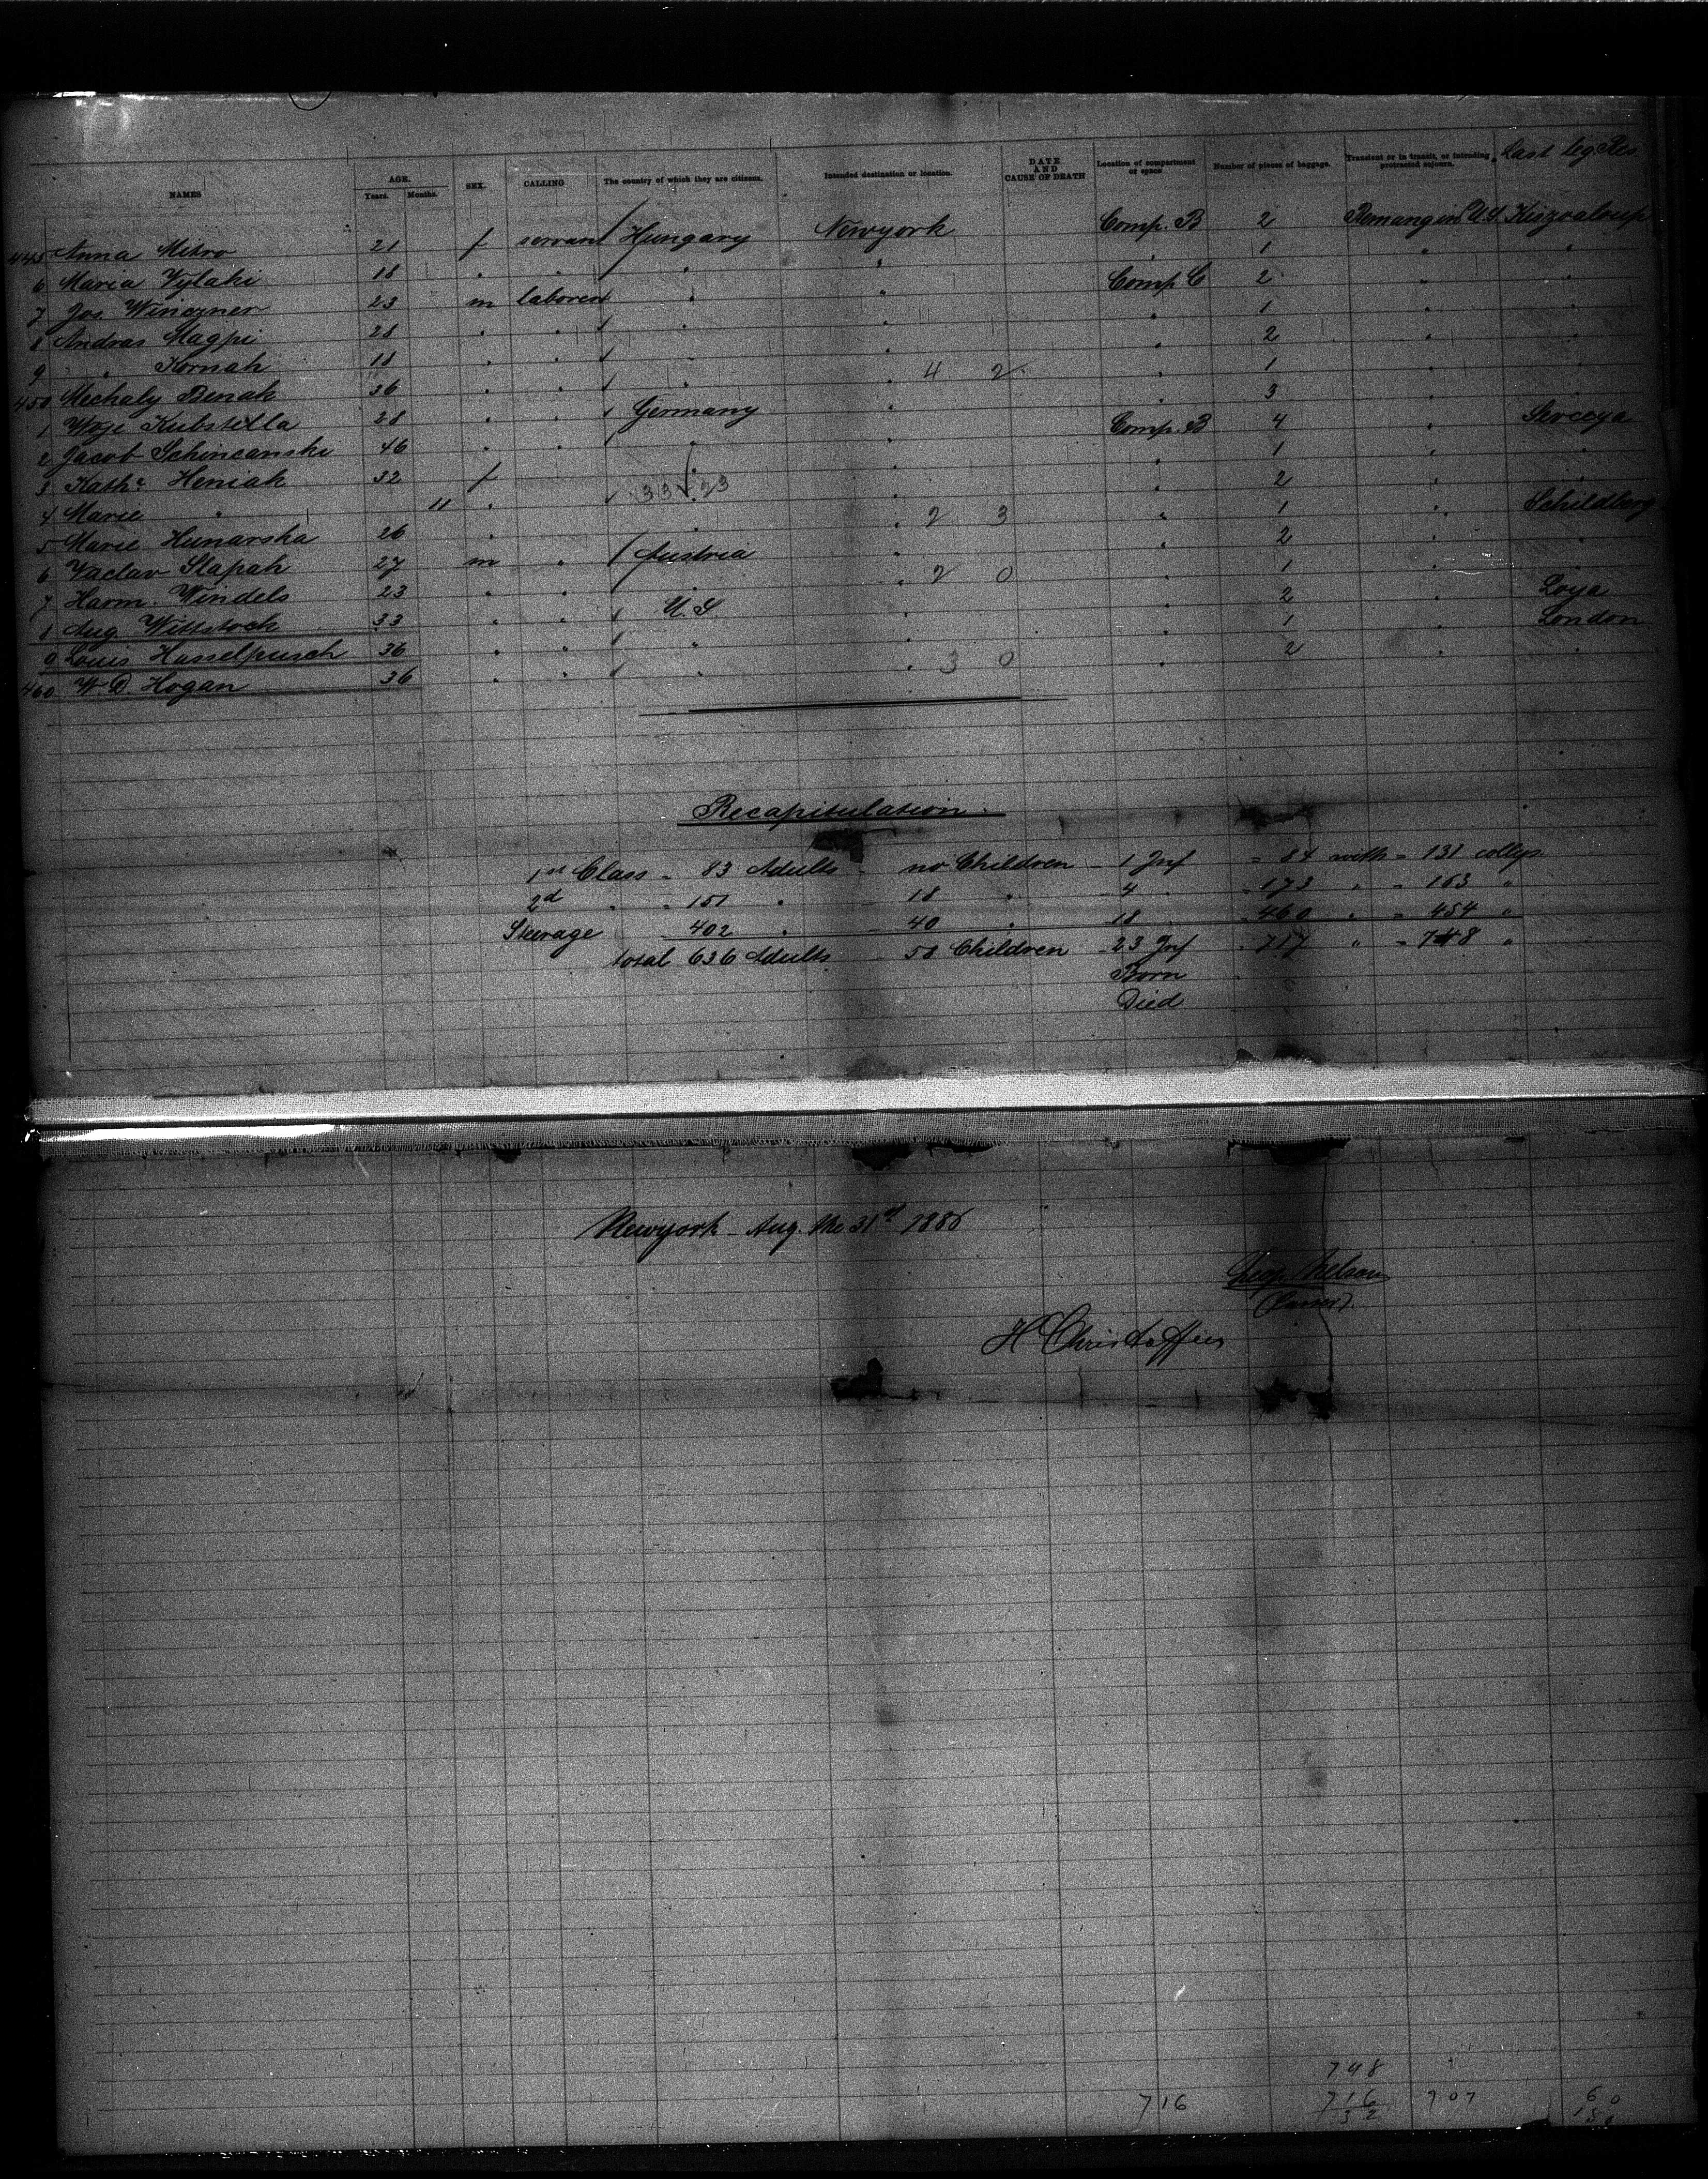 Last leg. Res
NAMES AGE. Years. Months. SEX. CALLING The country of which they are citizens. Intended destination or location. DATE AND CAUSE OF DEATH Location of compartment or space Number of pieces of baggage. Transient or in transit, or intending protracted sojourn.
445 Anna Mitro 21 f servant Hungary Newyork Comp. B 2 Remanging U.S.
6 Maria Vylaki 18 " " " " " 1 " "
7 Jos. Winczner 23 m laborer " " Comp. C 2 "
8 Andras Magpi 28 " " " " " 1 "
9 " Kornah 18 " " " " " 2 " "
450 Mechaly Benak 36 " " " " 4 2 " 1 "
1 Woje Kubstella 28 " " Germany " 3
2 Jacob Schincanski 46 " " " Comp. B 4 "
3 Kath. Heniak 32 f " " " 1 " "
4 Marie " 11 " 33 23 " " 2 "
5 Marie Hunarska 26 " " " 2 3 " 1 " Schildberg
6 Vaclav Slapah 27 m " Austria " " 2 "
7 Harm. Windels 23 " " " " 2 0 " 1 "
8 Aug. Wittstock 33 " " U.S. " " 2 " Loya
9 Louis Hasselpusch 36 " " " " " 1 " London
460 W. D. Hogan 36 " " " " 3 0 " 2 " "
Recapitulation.
1st Class - 83 Adults - no Children - 1 Inf = 84 with = 131 collys.
2d " - 151 " - 18 " - 4 " = 173 " = 163 "
Steerage - 402 " - 40 " - 18 " = 460 " = 454 "
total 636 Adults - 58 Children - 23 Inf = 717 " = 748 "
Born
Died
Newyork Aug. the 31st 1886
Nelson
(Purser).
H Christoffers
748
716 716 707 60
32